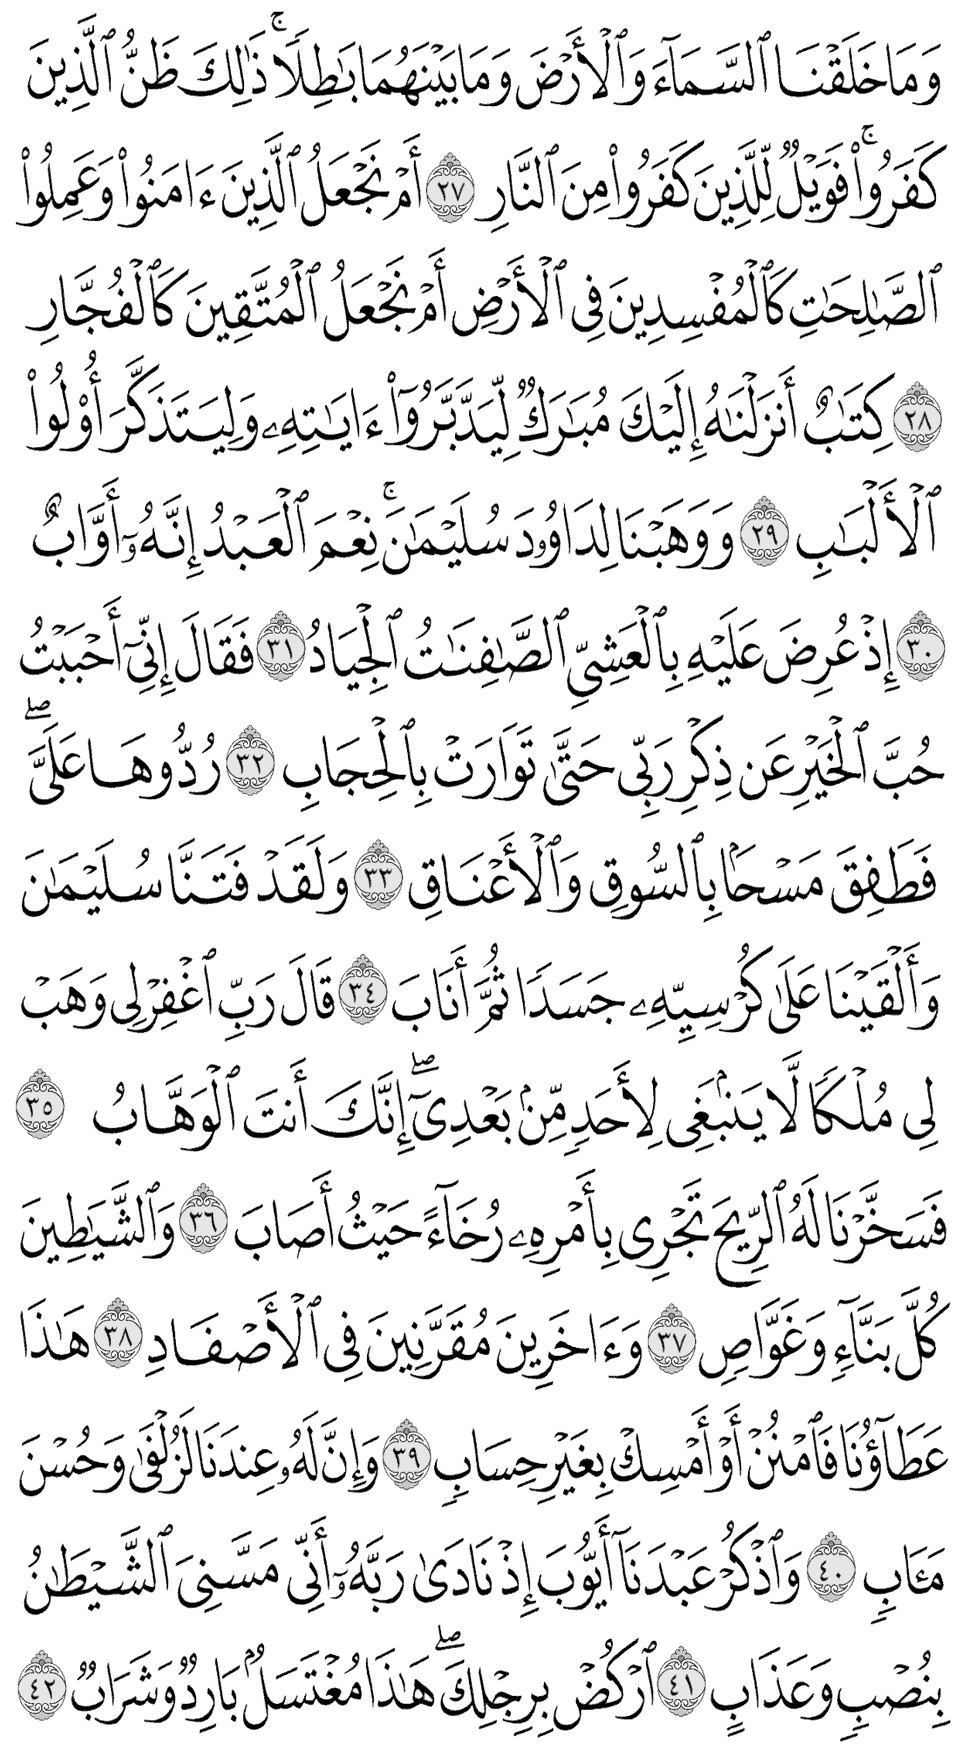 وَمَا خَلَقْنَا ٱلسَّمَآءَ وَٱلْأَرْضَ وَمَا بَيْنَهُمَا بَٰطِلًا ۚ ذَٰلِكَ ظَنُّ ٱلَّذِينَ
كَفَرُوا۟ ۚ فَوَيْلٌ لِّلَّذِينَ كَفَرُوا۟ مِنَ ٱلنَّارِ ٢٧ أَمْ نَجْعَلُ ٱلَّذِينَ ءَامَنُوا۟ وَعَمِلُوا۟
ٱلصَّٰلِحَٰتِ كَٱلْمُفْسِدِينَ فِى ٱلْأَرْضِ أَمْ نَجْعَلُ ٱلْمُتَّقِينَ كَٱلْفُجَّارِ
٢٨ كِتَٰبٌ أَنزَلْنَٰهُ إِلَيْكَ مُبَٰرَكٌ لِّيَدَّبَّرُوٓا۟ ءَايَٰتِهِۦ وَلِيَتَذَكَّرَ أُو۟لُوا۟
ٱلْأَلْبَٰبِ ٢٩ وَوَهَبْنَا لِدَاوُۥدَ سُلَيْمَٰنَ ۚ نِعْمَ ٱلْعَبْدُ إِنَّهُۥٓ أَوَّابٌ
٣٠ إِذْ عُرِضَ عَلَيْهِ بِٱلْعَشِىِّ ٱلصَّٰفِنَٰتُ ٱلْجِيَادُ ٣١ فَقَالَ إِنِّىٓ أَحْبَبْتُ
حُبَّ ٱلْخَيْرِ عَن ذِكْرِ رَبِّى حَتَّىٰ تَوَارَتْ بِٱلْحِجَابِ ٣٢ رُدُّوهَا عَلَىَّ ۖ
فَطَفِقَ مَسْحًۢا بِٱلسُّوقِ وَٱلْأَعْنَاقِ ٣٣ وَلَقَدْ فَتَنَّا سُلَيْمَٰنَ
وَأَلْقَيْنَا عَلَىٰ كُرْسِيِّهِۦ جَسَدًا ثُمَّ أَنَابَ ٣٤ قَالَ رَبِّ ٱغْفِرْ لِى وَهَبْ
لِى مُلْكًا لَّا يَنۢبَغِى لِأَحَدٍ مِّنۢ بَعْدِىٓ ۖ إِنَّكَ أَنتَ ٱلْوَهَّابُ ٣٥
فَسَخَّرْنَا لَهُ ٱلرِّيحَ تَجْرِى بِأَمْرِهِۦ رُخَآءً حَيْثُ أَصَابَ ٣٦ وَٱلشَّيَٰطِينَ
كُلَّ بَنَّآءٍ وَغَوَّاصٍ ٣٧ وَءَاخَرِينَ مُقَرَّنِينَ فِى ٱلْأَصْفَادِ ٣٨ هَٰذَا
عَطَآؤُنَا فَٱمْنُنْ أَوْ أَمْسِكْ بِغَيْرِ حِسَابٍ ٣٩ وَإِنَّ لَهُۥ عِندَنَا لَزُلْفَىٰ وَحُسْنَ
مَـَٔابٍ ٤٠ وَٱذْكُرْ عَبْدَنَآ أَيُّوبَ إِذْ نَادَىٰ رَبَّهُۥٓ أَنِّى مَسَّنِىَ ٱلشَّيْطَٰنُ
بِنُصْبٍ وَعَذَابٍ ٤١ ٱرْكُضْ بِرِجْلِكَ ۖ هَٰذَا مُغْتَسَلٌۢ بَارِدٌ وَشَرَابٌ ٤٢